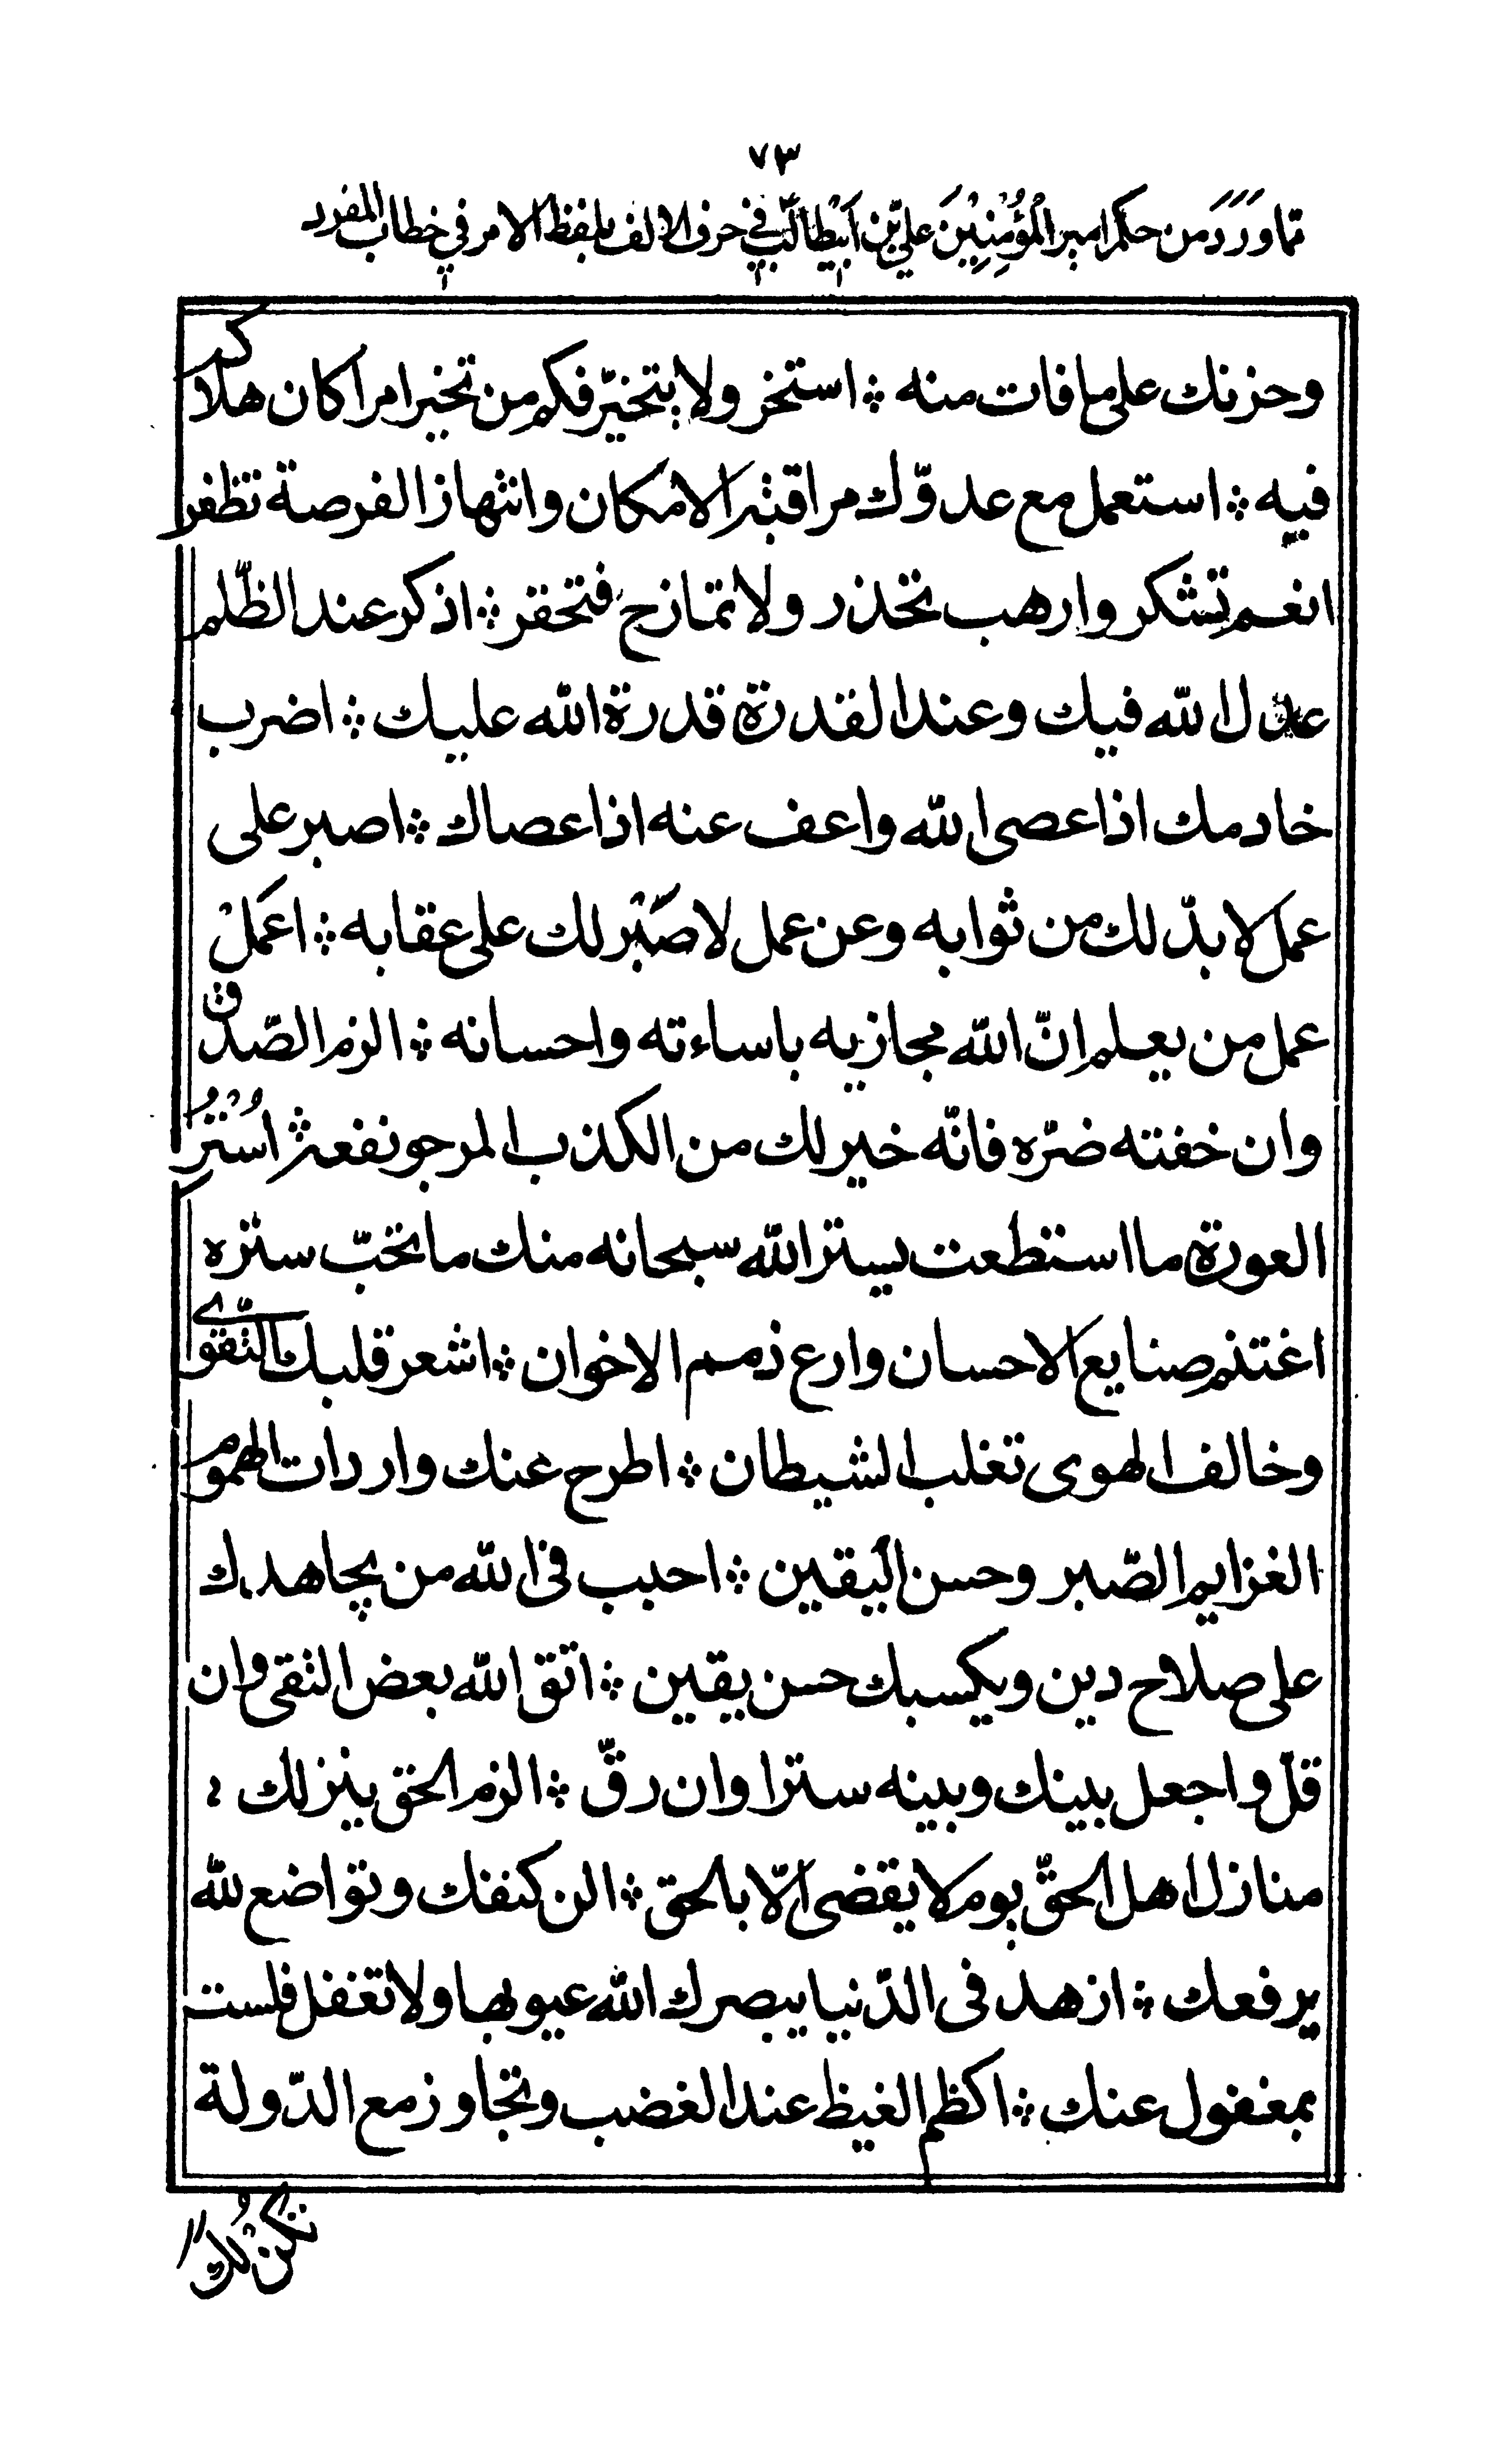 ٧٣
مما ورد من حكم امير المؤمنين علي بن ابيطالب في حرف الالف بلفظ الامر في خطاب المفرد
وحزنك على ما فات منه ؞ استخر ولا يتخيّر فكم من تخير امرا كان هلاكه
فيه ؞ استعمل مع عدوّك مراقبة الامكان وانتهاز الفرصة تظفر
انعم تشكر وارهب تحذر ولا تمازح فتحقر ؞ اذكر عند الظّلم
عدل الله فيك وعند القدرة قدرة الله عليك ؞ اضرب
خادمك اذا عصى الله واعف عنه اذا عصاك ؞ اصبر على
عمل لا بدّ لك من ثوابه وعن عمل لا صَبْر لك على عقابه ؞ اعمَلْ
عمل من يعلم انّ الله مجازيه باساءته واحسانه ؞ الزم الصّدق
وان خفته ضرّه فانّه خير لك من الكذب المرجو نفعه ؞ اُسْتُرْ
العورة ما استطعت يستر الله سبحانه منك ما تحبّ ستره
اغتنم صنايع الاحسان وارع ذمم الاخوان ؞ اشعر قلبك التّقوى
وخالف الهوى تغلب الشيطان ؞ اطرح عنك واردات الهموم
الغزايم الصّبر وحسن اليقين ؞ احبب في الله من يجاهدك
على صلاح دين ويكسبك حسن يقين ؞ اتق الله بعض التقى وان
قلّ واجعل بينك وبينه سترا وان رقّ ؞ الزم الحق ينزلك
منازل اهل الحقّ يوم لا يقضى الّا بالحق ؞ الن كنفك وتواضع لله
يرفعك ؞ ازهد فى الدّنيا يبصرك الله عيوبها ولا تغفل فلست
بمغفول عنك ؞ اكظم الغيظ عند الغضب وتجاوز مع الدّولة
تكن لك